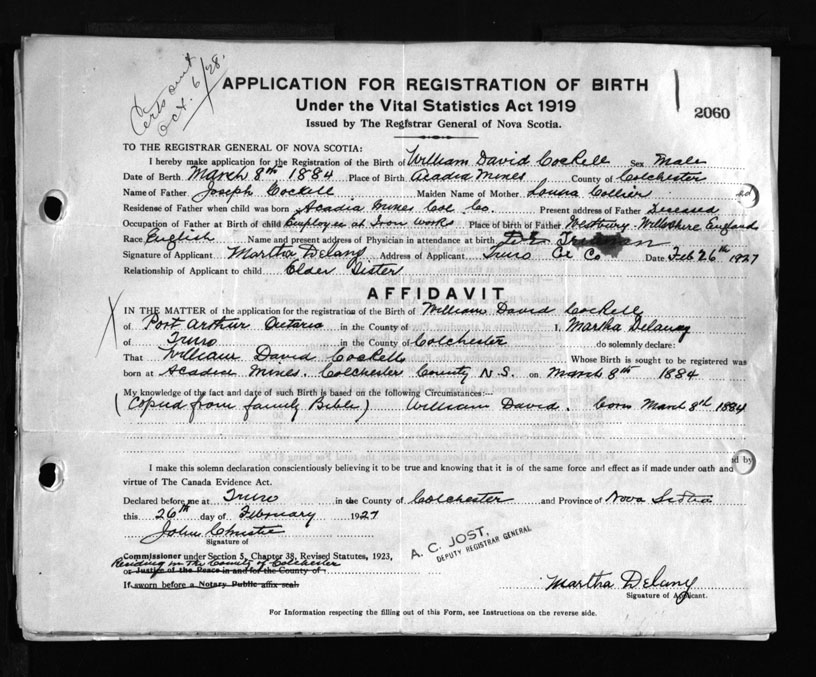 Certs sent
Oct. 6/28.
APPLICATION FOR REGISTRATION OF BIRTH
Under the Vital Statistics Act 1919
2060
Issued by The Registrar General of Nova Scotia.
TO THE REGISTRAR GENERAL OF NOVA SCOTIA:
I hereby make application for the Registration of the Birth of William David Cockell Sex Male
Date of Berth March 8th 1884 Place of Birth Acadia Mines County of Colchester
Name of Father Joseph Cockell Maiden Name of Mother Louisa Collier
Residense of Father when child was born Acadia Mines Col. Co. Present address of Father Deceased
Occupation of Father at Birth of child Employee at Iron Works Place of birth of Father Westbury Wiltshire England
Race English Name and present address of Physician in attendance at birth
Signature of Applicant Martha Delany Address of Applicant Truro Col Co Date Feb 26th 1927
Relationship of Applicant to child Elder Sister
AFFIDAVIT
IN THE MATTER of the application for the registration of the Birth of William David Cockell
of Port Arthur Ontario in the County of I, Martha Delaney
of Truro in the County of Colchester do solemnly declare:
That William David Cockell Whose Birth is sought to be registered was
born at Acadia Mines. Colchester County N.S. on March 8th 1884
My knowledge of the fact and date of such Birth is based on the following Circumstances:—
(Copied from family Bible) William David. Born March 8th 1884
d by
I make this solemn declaration conscientiously believing it to be true and knowing that it is of the same force and effect as if made under oath and
virtue of The Canada Evidence Act.
Declared before me at Truro in the County of Colchester and Province of Nova Scotia
this 26th day of February 1927
John Christie
Signature of
A. C. JOST,
DEPUTY REGISTRAR GENERAL
Commissioner under Section 5, Chapter 38, Revised Statutes, 1923,
Residing in the County of Colchester
or Justice of the Peace in and for the County of
If sworn before a Notary Public affix seal.
Martha Delany
Signature of Applicant.
For Information respecting the filling out of this Form, see Instructions on the reverse side.